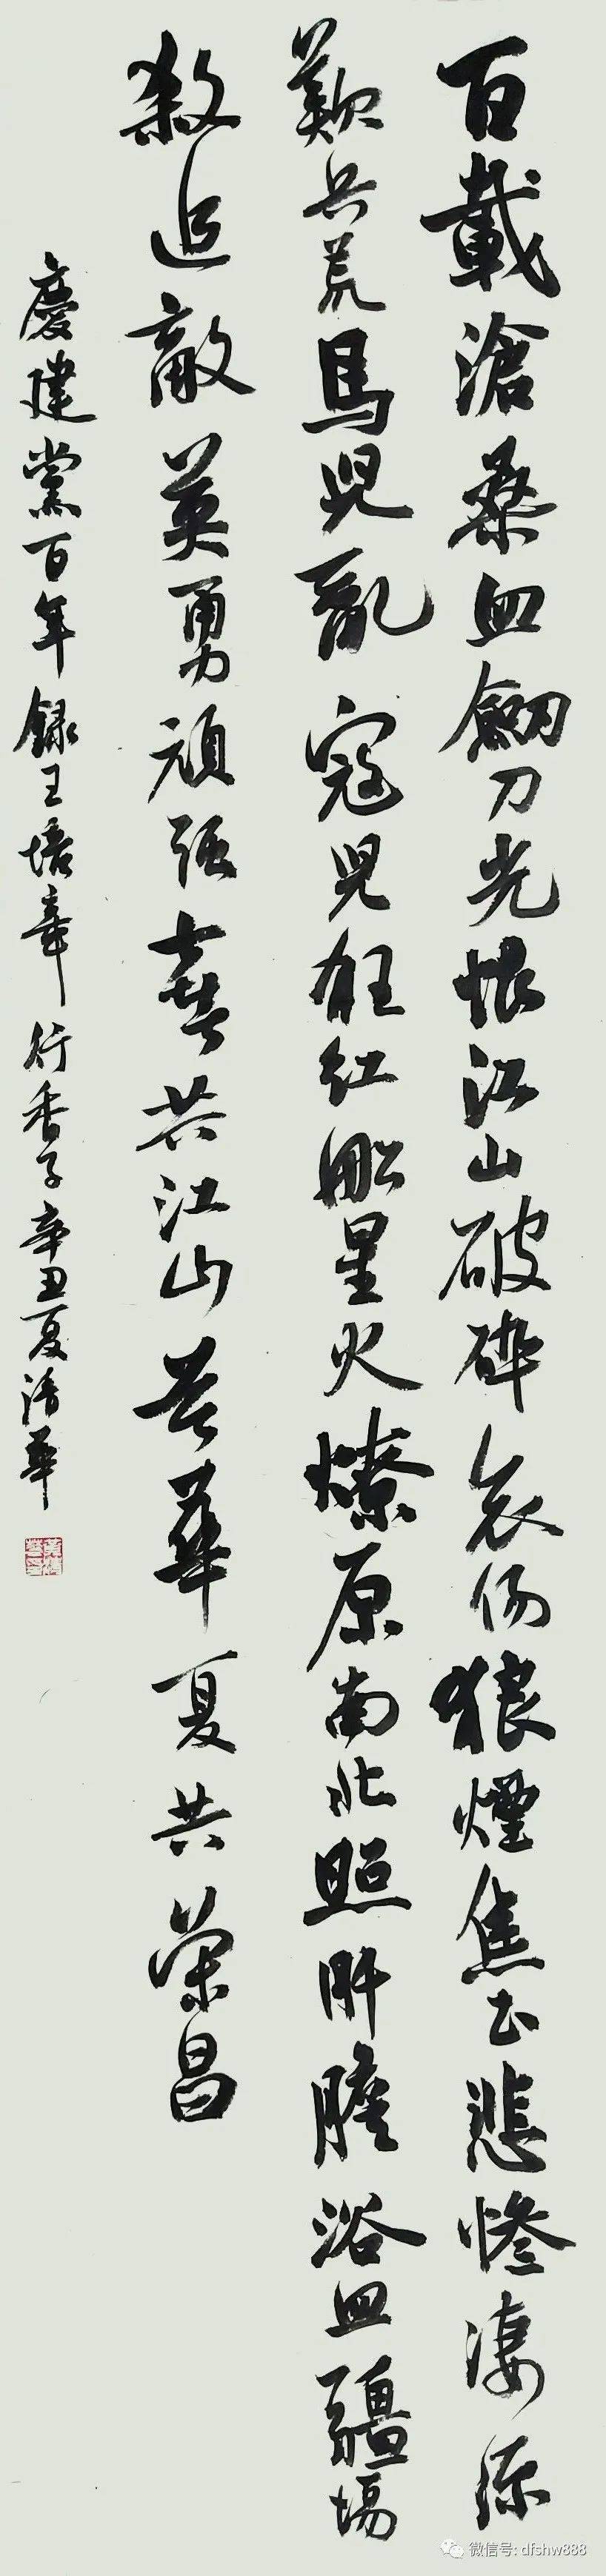 百載滄桑血劒刀光恨江山破碎哀傷狼煙焦土悲慘淒涼
歎兵荒馬兒亂寇兒狂紅船星火燎原南北照肝膽浴血疆場
殺追敵英勇頑強喜共江山華夏共榮昌
慶建黨百年錄王培章行香子辛丑夏清華
微信号: dfshw888